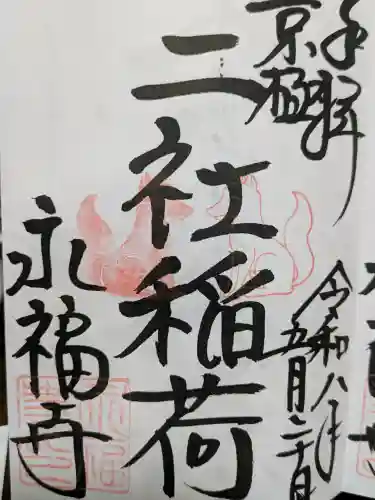 奉拝
京極
二社稲荷
令和八年
五月二十日
永福寺